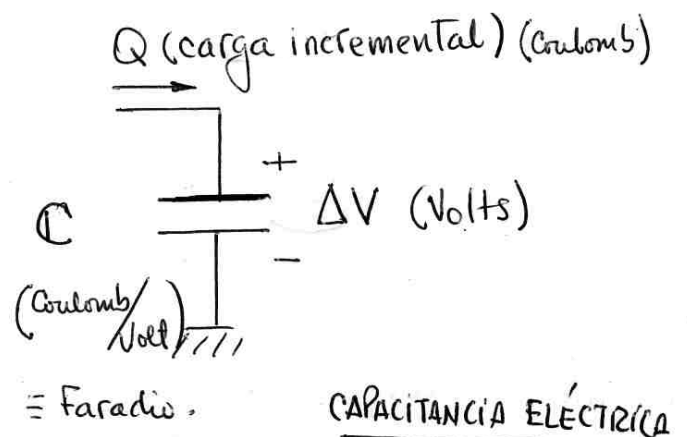 Q (carga incremental) (Coulomb)
+
ΔV (Volts)
ℂ
−
(Coulomb/
Volt)
≡ Faradio.
CAPACITANCIA ELÉCTRICA